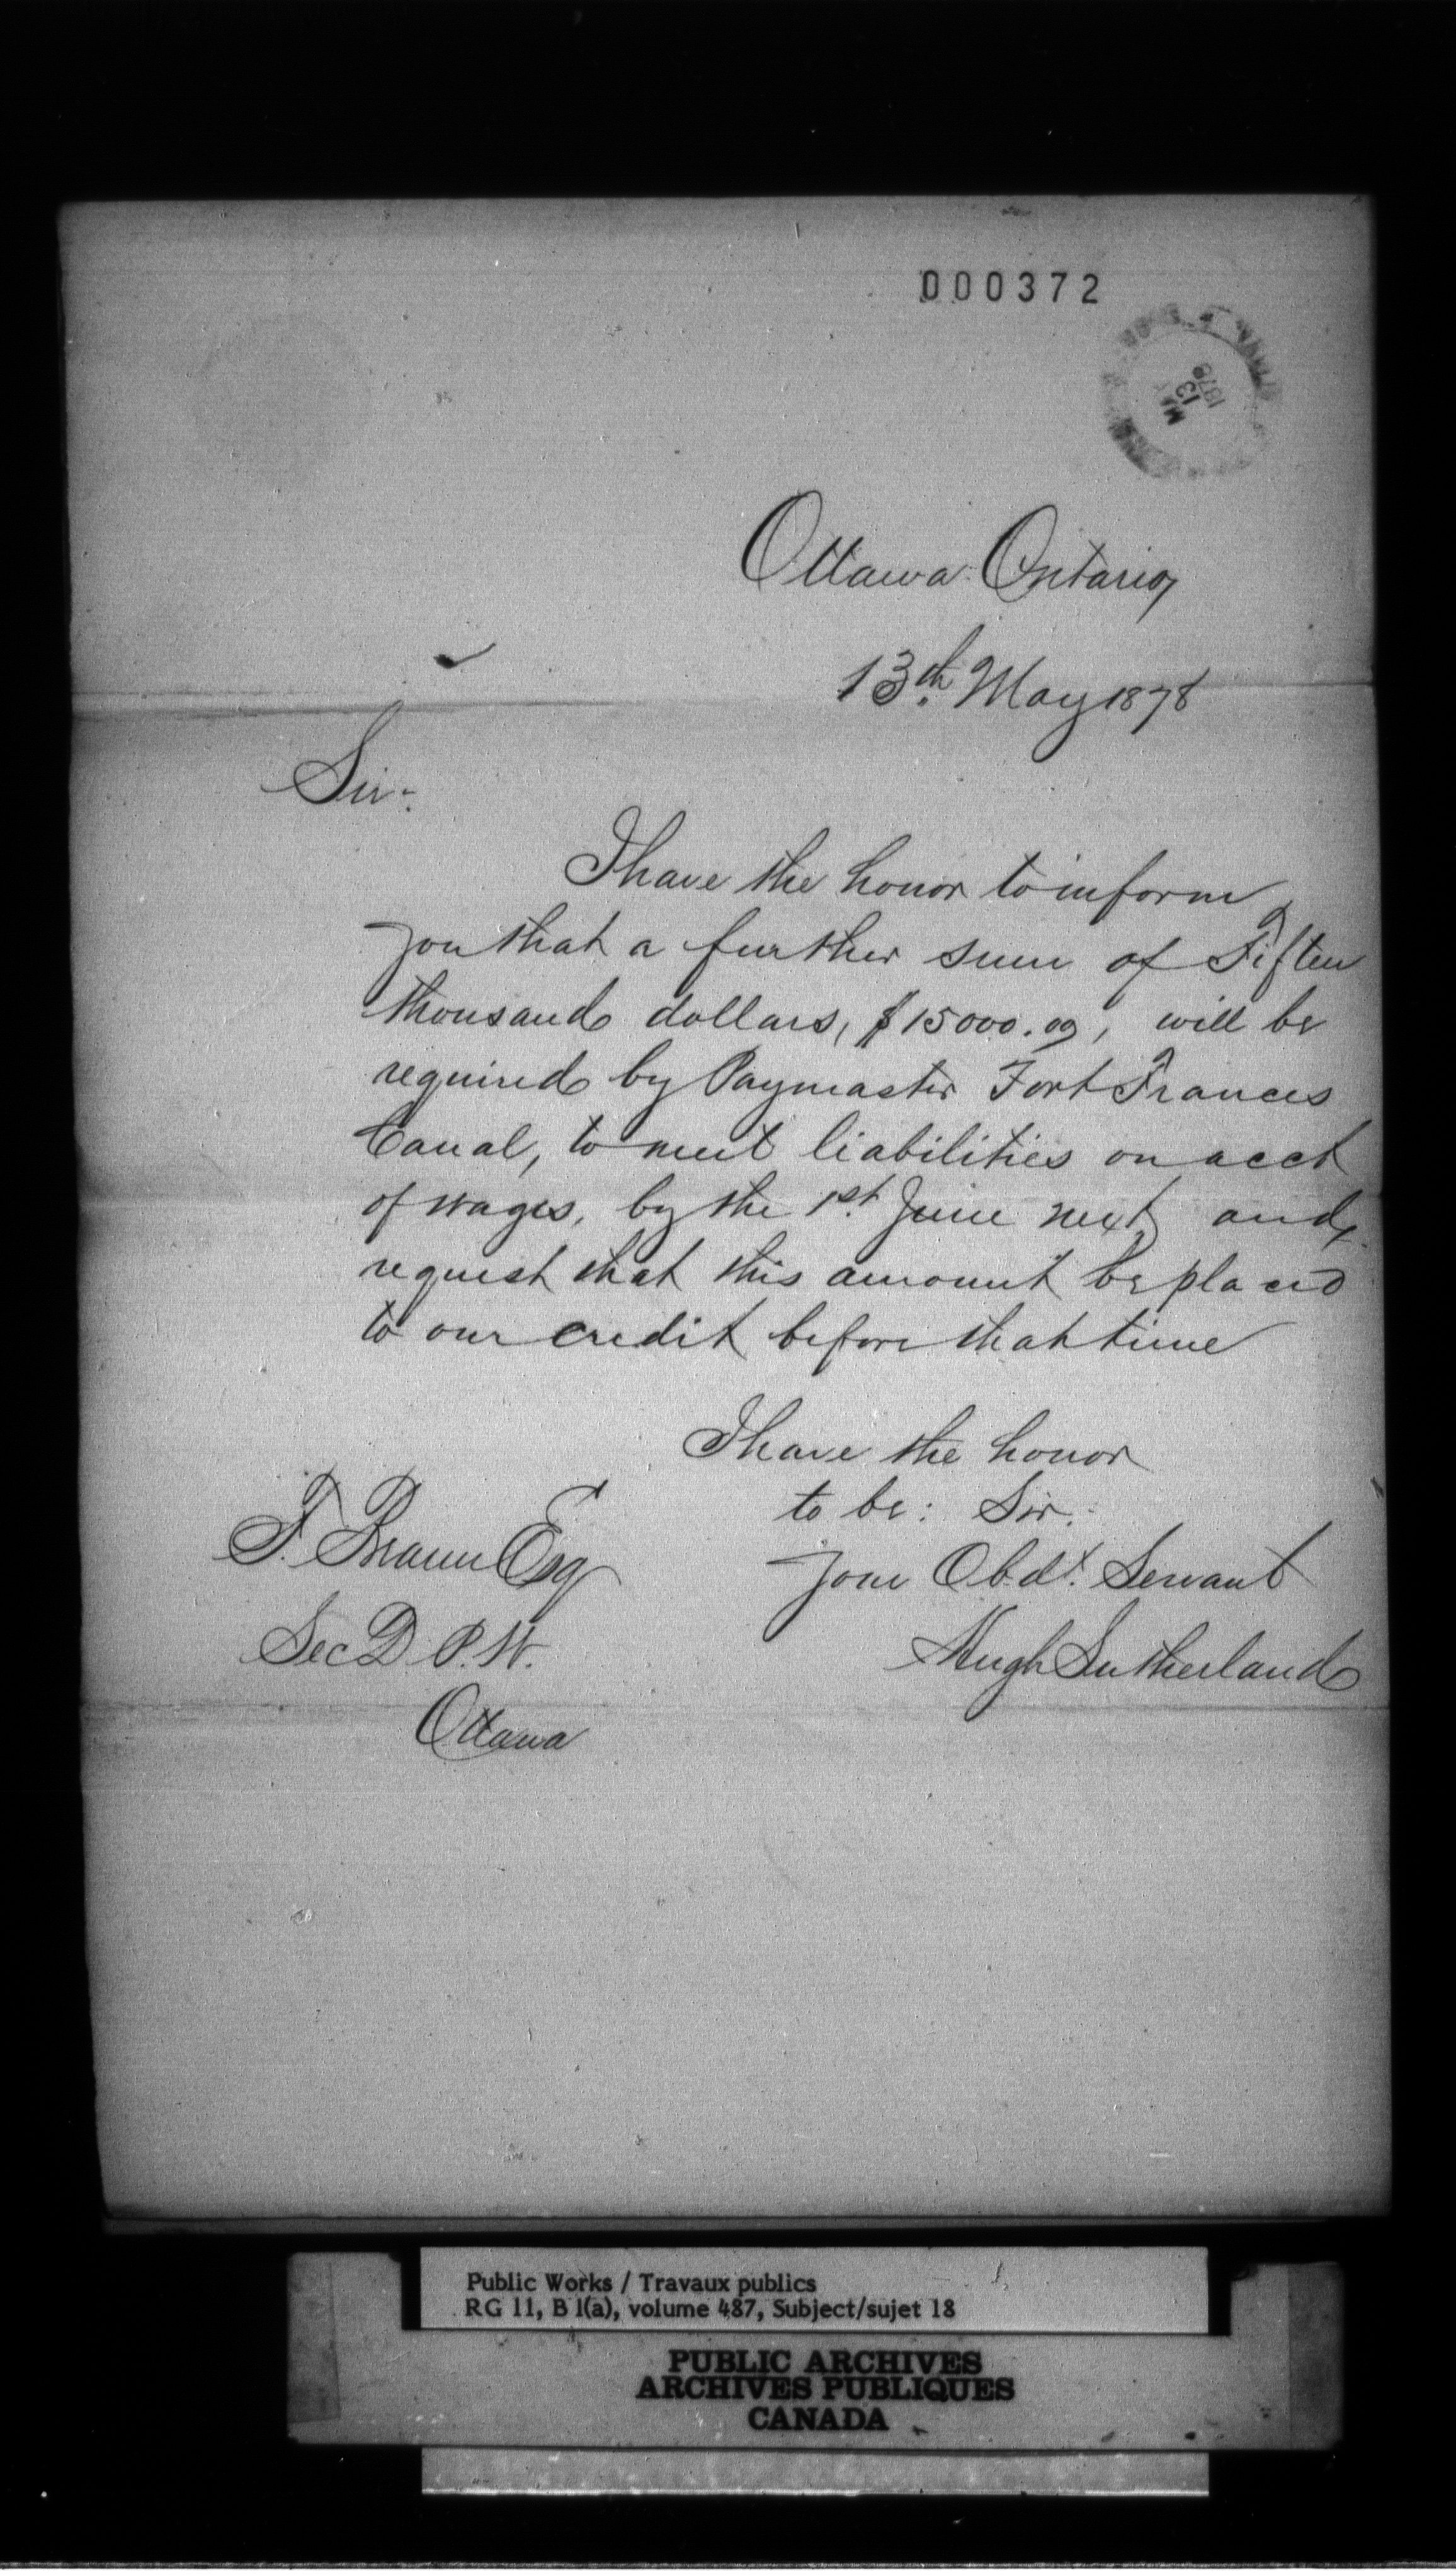 000372
MAY
13
1878
Ottawa Ontario,
13th. May 1878
Sir:
I have the honor to inform
you that a further sum of Fiften
thousand dollars, $15000.00, will be
required by Paymaster Fort Frances
Canal, to meet liabilities on acct
of wages, by the 1st. June next and
request that this amount be placed
to our credit before that time
I have the honor
to be: Sir:
Your Obdt. Servant
Hugh Sutherland
F. Braun Esq
Sec D. P. W.
Ottawa
Public Works / Travaux publics
RG 11, B 1(a), volume 487, Subject/sujet 18
PUBLIC ARCHIVES
ARCHIVES PUBLIQUES
CANADA